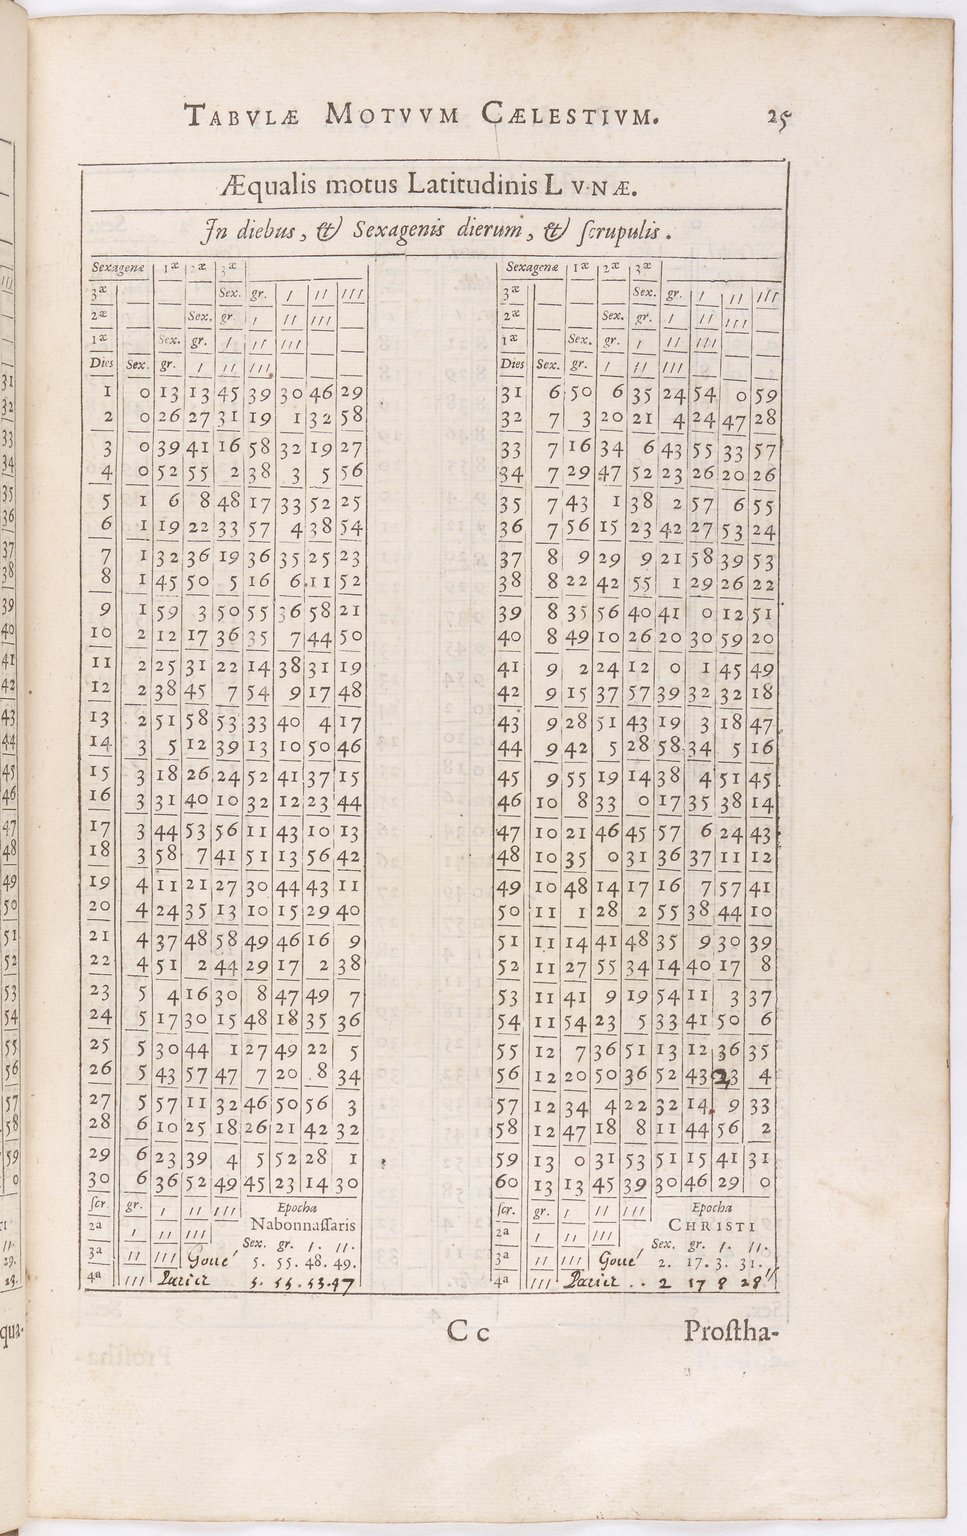 TABVLÆ MOTVVM CÆLESTIVM. 25
Æqualis motus Latitudinis LVNÆ.
In diebus, & Sexagenis dierum, & ſcrupulis.
Sexagenæ 1æ 2æ 3æ
3æ Sex. gr. / // ///
2æ Sex. gr. / // ///
1æ Sex. gr. / // ///
Dies Sex. gr. / // ///
1 0 13 13 45 39 30 46 29
2 0 26 27 31 19 1 32 58
3 0 39 41 16 58 32 19 27
4 0 52 55 2 38 3 5 56
5 1 6 8 48 17 33 52 25
6 1 19 22 33 57 4 38 54
7 1 32 36 19 36 35 25 23
8 1 45 50 5 16 6 11 52
9 1 59 3 50 55 36 58 21
10 2 12 17 36 35 7 44 50
11 2 25 31 22 14 38 31 19
12 2 38 45 7 54 9 17 48
13 2 51 58 53 33 40 4 17
14 3 5 12 39 13 10 50 46
15 3 18 26 24 52 41 37 15
16 3 31 40 10 32 12 23 44
17 3 44 53 56 11 43 10 13
18 3 58 7 41 51 13 56 42
19 4 11 21 27 30 44 43 11
20 4 24 35 13 10 15 29 40
21 4 37 48 58 49 46 16 9
22 4 51 2 44 29 17 2 38
23 5 4 16 30 8 47 49 7
24 5 17 30 15 48 18 35 36
25 5 30 44 1 27 49 22 5
26 5 43 57 47 7 20 8 34
27 5 57 11 32 46 50 56 3
28 6 10 25 18 26 21 42 32
29 6 23 39 4 5 52 28 1
30 6 36 52 49 45 23 14 30
ſcr. gr. / // /// Epocha
2a / // /// Nabonnaſſaris
Sex. gr. /. //.
3a // /// Goué 5. 55. 48. 49.
4a /// Parier 5. 55. 53. 47
Sexagenæ 1æ 2æ 3æ
3æ Sex. gr. / // ///
2æ Sex. gr. / // ///
1æ Sex. gr. / // ///
Dies Sex. gr. / // ///
31 6 50 6 35 24 54 0 59
32 7 3 20 21 4 24 47 28
33 7 16 34 6 43 55 33 57
34 7 29 47 52 23 26 20 26
35 7 43 1 38 2 57 6 55
36 7 56 15 23 42 27 53 24
37 8 9 29 9 21 58 39 53
38 8 22 42 55 1 29 26 22
39 8 35 56 40 41 0 12 51
40 8 49 10 26 20 30 59 20
41 9 2 24 12 0 1 45 49
42 9 15 37 57 39 32 32 18
43 9 28 51 43 19 3 18 47
44 9 42 5 28 58 34 5 16
45 9 55 19 14 38 4 51 45
46 10 8 33 0 17 35 38 14
47 10 21 46 45 57 6 24 43
48 10 35 0 31 36 37 11 12
49 10 48 14 17 16 7 57 41
50 11 1 28 2 55 38 44 10
51 11 14 41 48 35 9 30 39
52 11 27 55 34 14 40 17 8
53 11 41 9 19 54 11 3 37
54 11 54 23 5 33 41 50 6
55 12 7 36 51 13 12 36 35
56 12 20 50 36 52 43 23 4
57 12 34 4 22 32 14 9 33
58 12 47 18 8 11 44 56 2
59 13 0 31 53 51 15 41 31
60 13 13 45 39 30 46 29 0
ſcr. gr. / // /// Epocha
2a / // /// CHRISTI
Sex. gr. /. //.
3a // /// Goué 2. 17. 3. 31.
4a /// Parier .. 2 17 8 28//
Cc Proſtha-